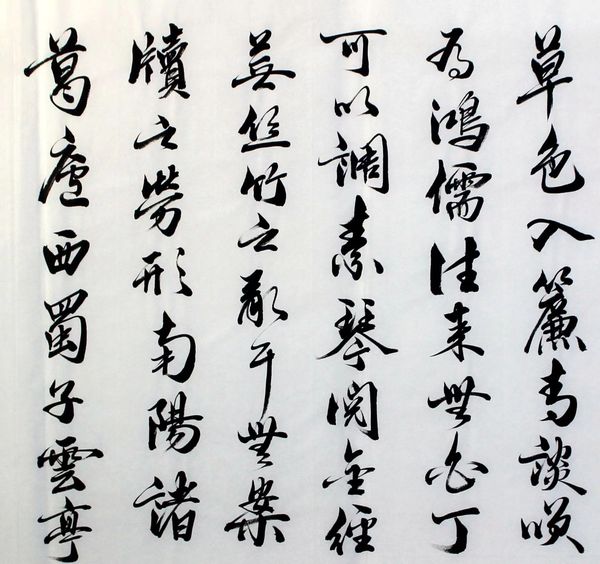 草色入簾青談咲
為鴻儒往来無白丁
可以調素琴閱金經
無丝竹之亂耳無案
牘之勞形南陽諸
葛廬西蜀子雲亭